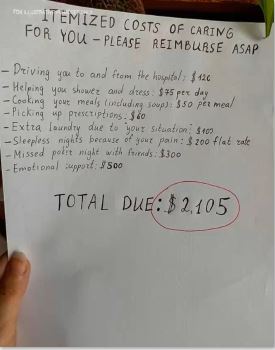 ITEMIZED COSTS OF CARING
FOR YOU - PLEASE REIMBURSE ASAP
- Driving you to and from the hospital: $120
- Helping you shower and dress: $75 per day
- Cooking your meals (including soup): $50 per meal
- Picking up prescriptions: $60
- Extra laundry due to your situation: $100
- Sleepless nights because of your pain: $200 flat rate
- Missed poker night with friends: $300
- Emotional support: $500
TOTAL DUE: $2,105